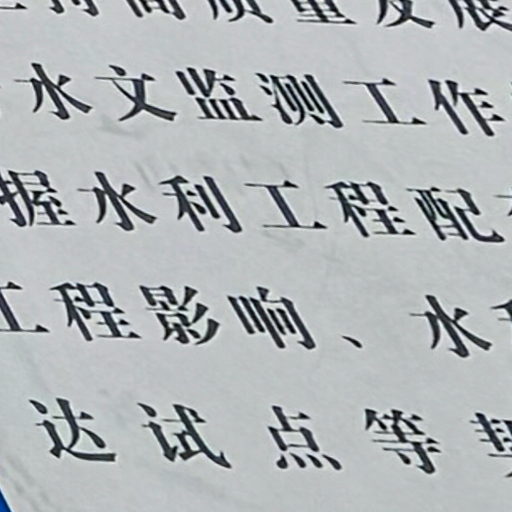 持高质量发展
水文监测工作
握水利工程配
工程影响、水利
达试点等